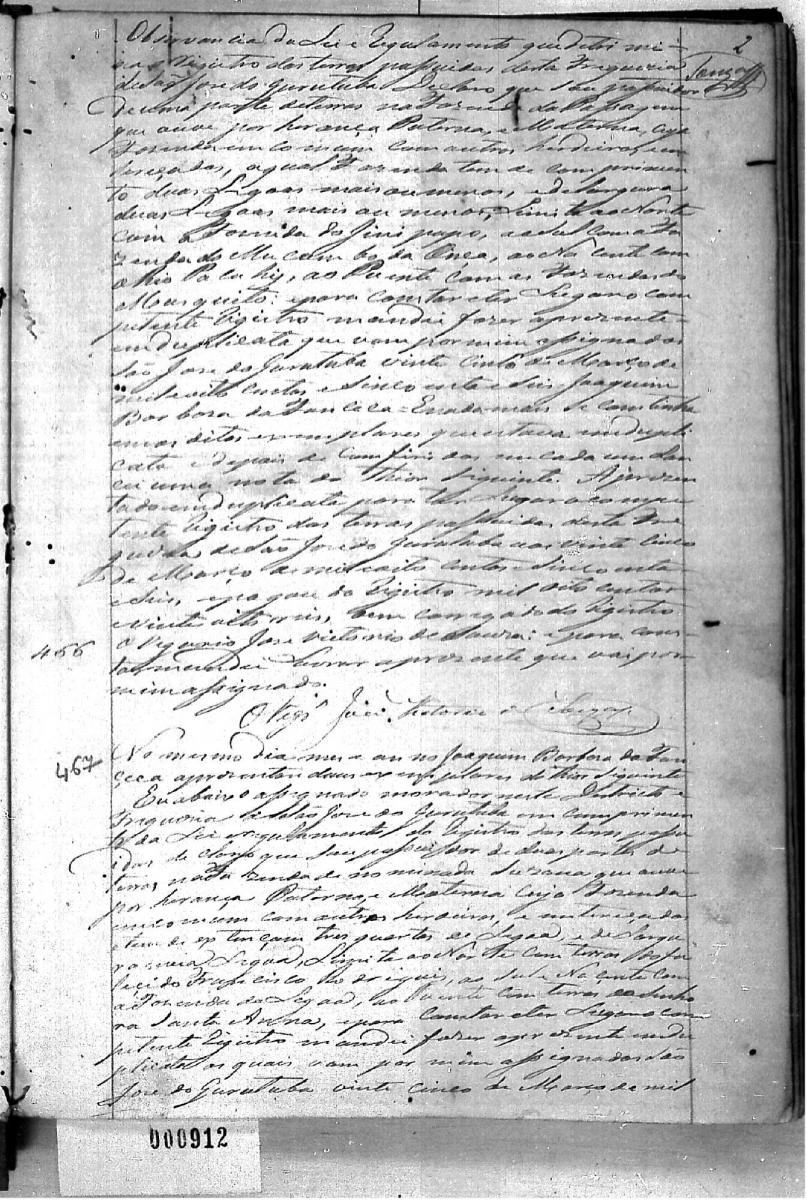 2
Souza
Observancia da Lei e Regulamento que detri mi-
na o Registro das terras possuidas desta Freguezia
de São Jose do Gurutuba Declaro que Sou possuidor
de uma parte de terras na Fazenda da Passagem
que ouve por herança Paterna, e Materna, cuja
Fazenda em comum com outros herdeiros, em
a qual Fazenda tem de comprimen
to duas Legoas mais ou menos, e de largura
duas Legoas mais ou menos, Limita ao Norte
com a Fazenda do Jinipapo, ao Sul com a Fa
zenda do Mucambo da Onça, ao Nacente com
o Rio Pacuhy, ao Puente com as Fazendas do
Mosquito: e para constar e ter Lugar o com
petente Registro mandei fazer a prezente
em duplicata que vam por mim assignados
São Jose do Gurutuba vinte cinco de Março de
mil e oito centos e Sincoenta e Seis Joaquim
Barboza da Fonceca = E nada mais Se continha
em os ditos exemplares que estava em dupli
cata e depois de comfiridos em cada um Lan
cei uma nota do Thior Siguinte. Aprezen
tado em duplicata para ter Lugar o compe
tente Registro das terras possuidas desta Fre
guezia de São Jose do Gurutuba aos vinte cinco
de Março de mil e oito centos e Sincoenta
e Seis, e pagou do Registro mil oito centos
e vinte oito reis, Eu em carregado do Registro
466
O Vigario Jose Victorio de Souza: e para cons
tar mandei Lavrar a prezente que vai por
mim assignado.
O Vigr.º José Victorio de Souza
467
No mesmo dia mes e anno Joaquim Barboza da Fon
ceca aprezentou dous exemplares do thior Siguinte
Eu abaixo assignado morador neste Districto e
Freguezia de São Jose do Gurutuba em comprimen
to da Lei e regulamento do Registro das terras possu
idas declaro que Sou possuidor de duas partes de
terras na Fazenda denominada que ouve
por herança Paterna, e Materna cuja Fazenda
em comum com outros herdeiros, e
e tem de extençam tres quartos de Legoa, e de Largu
ra meia Legoa, Limita ao Norte com terras do fa
lecido Francisco Rodrigues, ao Sul e Nacente com
a Fazenda da Legoa, ao Puente com terras da Senho
ra Santa Anna, e para constar e ter Lugar o com
petente Registro mandei fazer a prezente em du
plicata os quais vam por mim assignados São
Jose do Gurutuba vinte cinco de Março de mil
000912